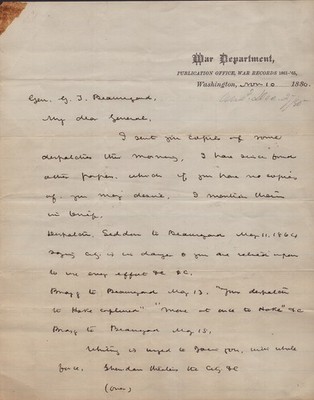 War Department,
PUBLICATION OFFICE, WAR RECORDS 1861-'65,
Washington, Nov 10 1880.
Gen. G. T. Beauregard.
My dear General,
I sent you copies of some
despatches this morning. I have since found
other papers which if you have no copies
of you may desire. I mention them
in brief.
Despatch, Seddon to Beauregard May 11, 1864
saying city is in danger & you are relied upon
to use every effort &c &c.
Bragg to Beauregard May 13. "Your despatch
to Hoke explained" "Move at once to Hoke" &c
Bragg to Beauregard May 13.
Whiting is urged to join you, with whole
force. Sheridan threatens the City &c
(over)